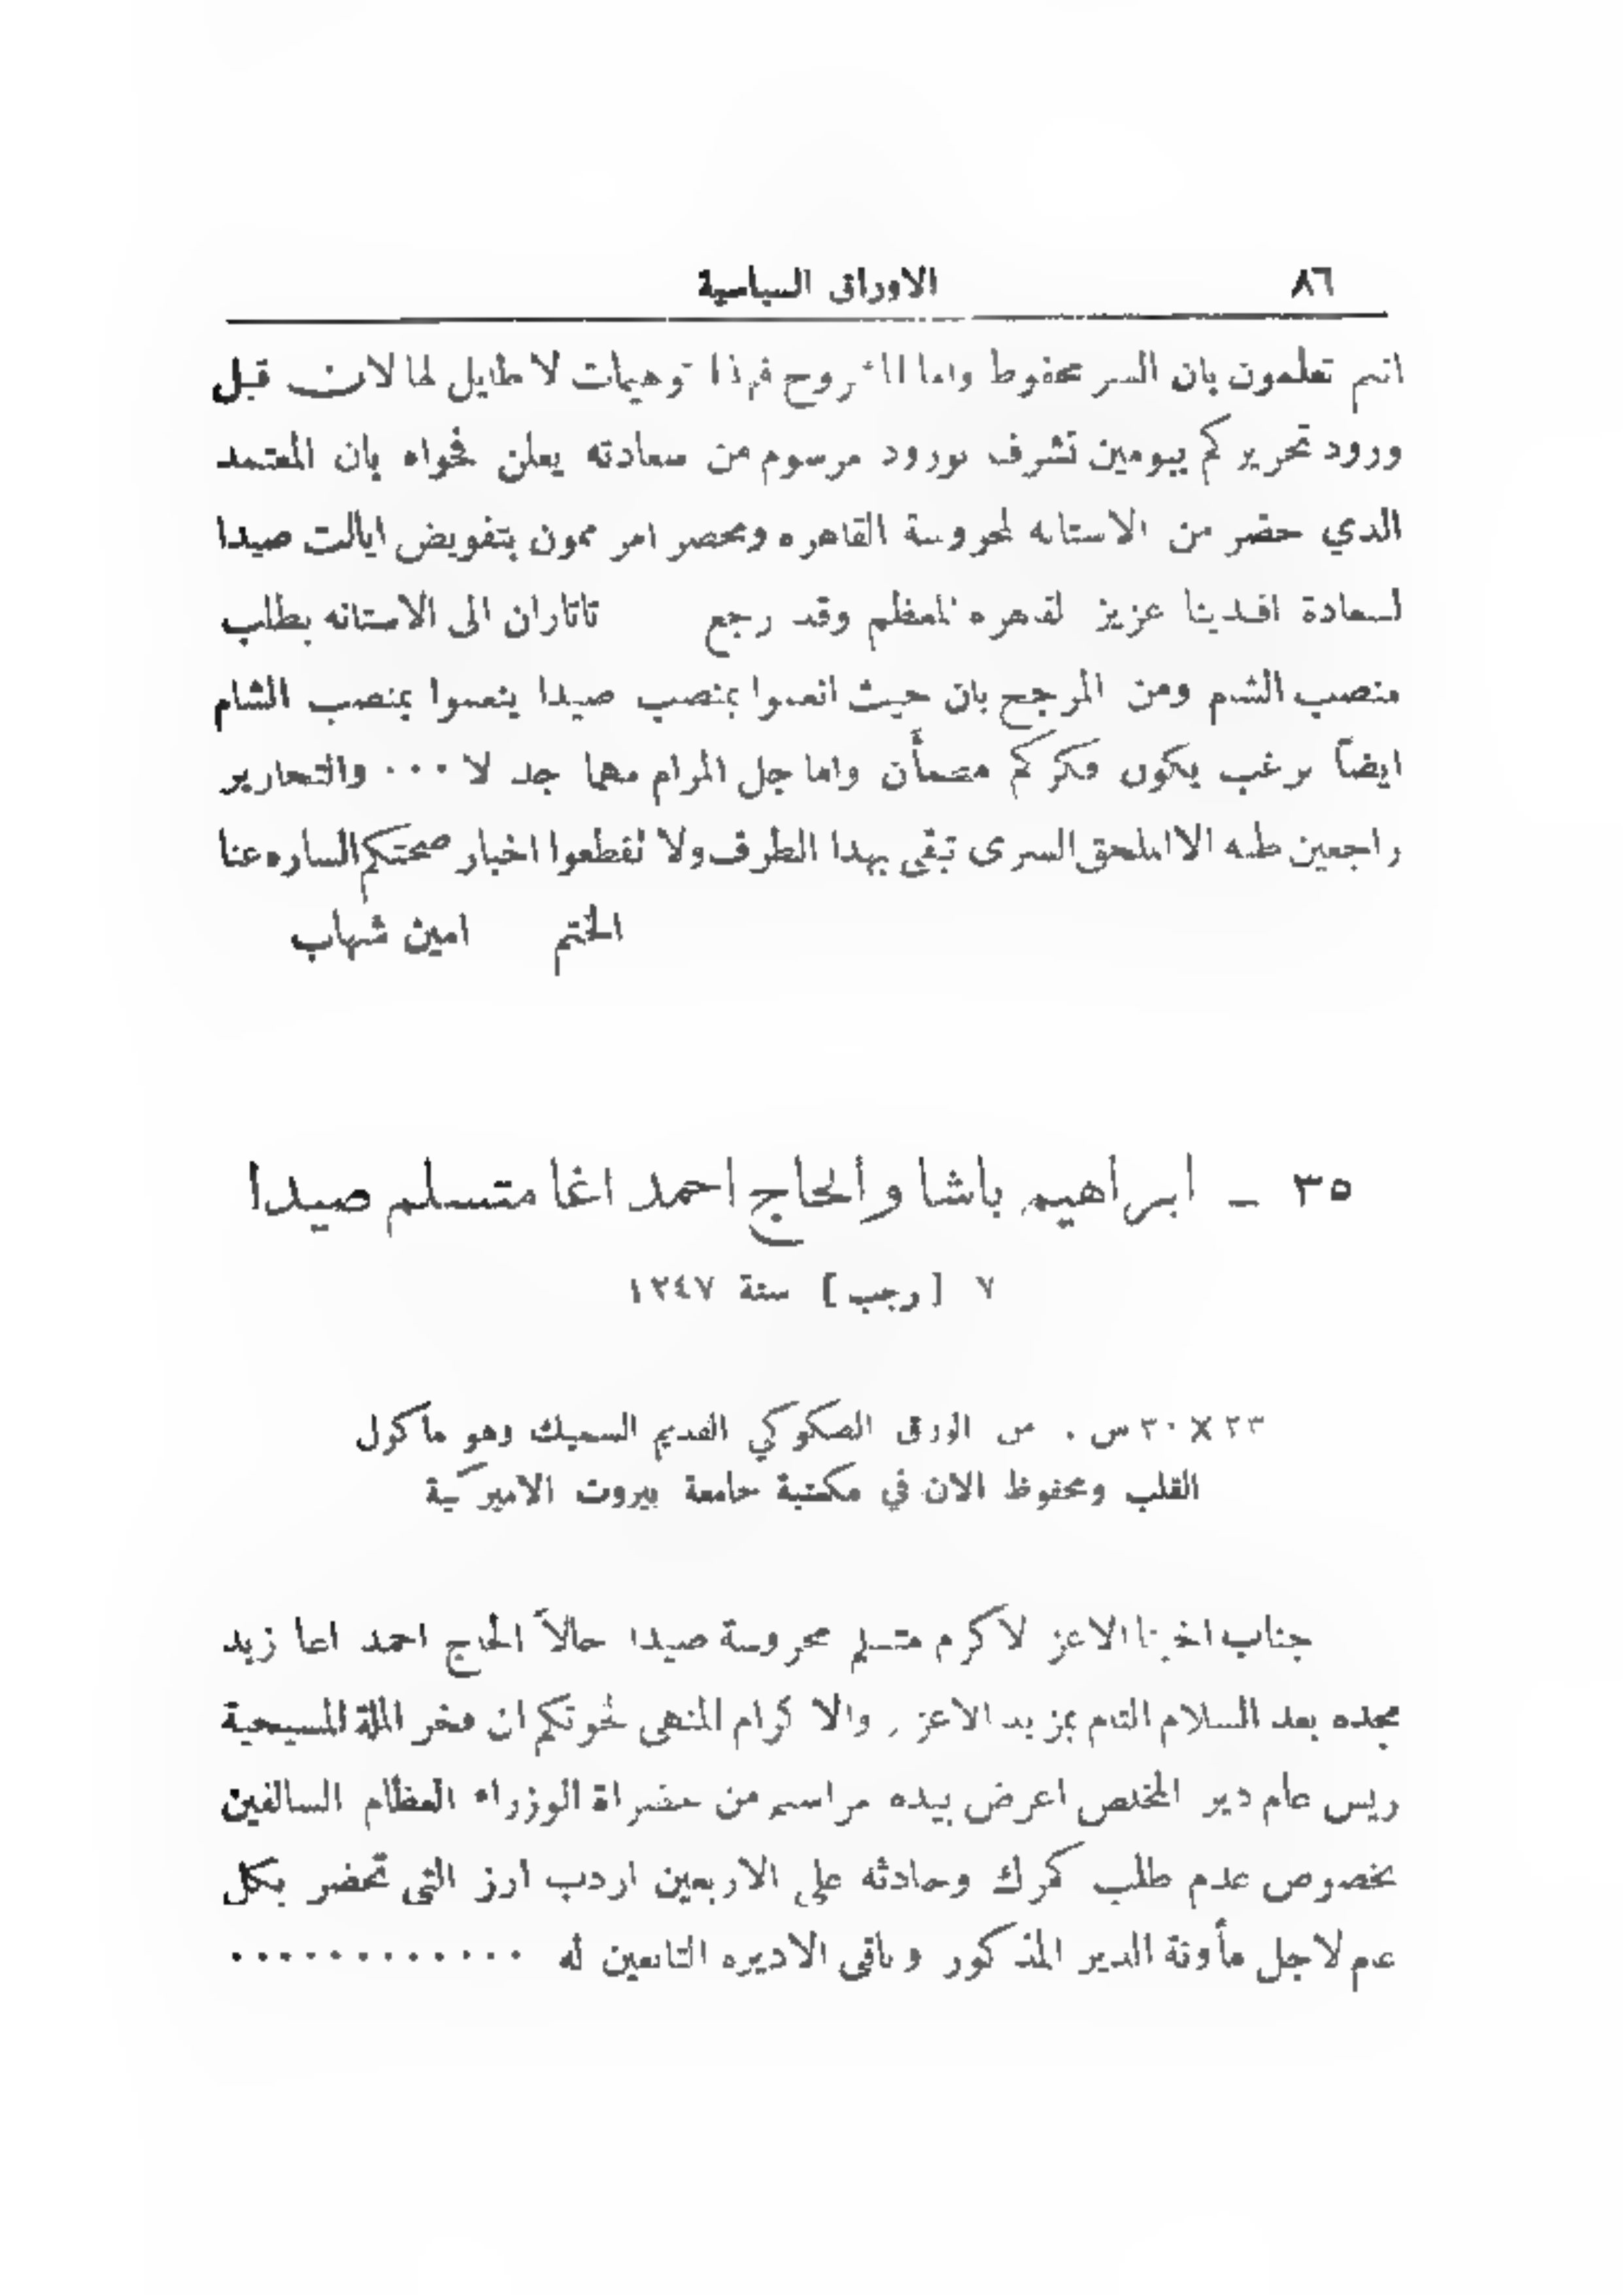 ٨٦ الاوراق السياسية
انتم تعلمون بان السر محفوظ واما المشروح فهذا توهيمات لا طايل لها لان قبل
ورود تحريركم بيومين تشرف بورود مرسوم من سعادته يعلن فحواه بان المعتمد
الدي حضر من الاستانه لمحروسة القاهره ومحصر امر ممون بتفويض ايالت صيدا
لسعادة افدينا عزيز القاهره المعظم وقد رجع تاتاران الى الاستانه بطلب
منصب الشام ومن المرجح بان حيث انعموا بمنصب صيدا ينعموا بمنصب الشام
ايضاً نرغب يكون فكركم مضمأن واما جل المرام مهما جد لا ٠٠٠ والتحارير
راجعين طيه الا الملحق السرى تبقى بهدا الطرف ولا تقطعوا اخبار صحتكم الساره عنا
الختم امين شهاب
٣٥ – ابراهيم باشا والحاج احمد اغا متسلم صيدا
٧ [رجب] سنة ١٢٤٧
٢٣ × ٣٠ س . من الورق الصكوكي القديم السميك وهو ماكول
القلب ومحفوظ الان في مكتبة جامعة بيروت الاميركية
جناب اخينا الاعز الاكرم متسلم محروسة صيدا حالاً الحاج احمد اغا زيد
مجده بعد السلام التام بمزيد الاعزاز والاكرام المنهى لخوتكم ان فخر الملة المسيحية
ريس عام دير المخلص اعرض بيده مراسيم من حضراة الوزراء العظام السالفين
بخصوص عدم طلب كمرك وحادثه على الاربعين اردب ارز التى تحضر بكل
عام لاجل مأونة الدير المذكور وباقى الاديره التابعين له ٠٠٠٠٠٠٠٠٠٠٠٠